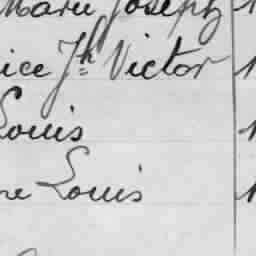 Marie Joseph
ice Jh Victor
Louis
re Louis